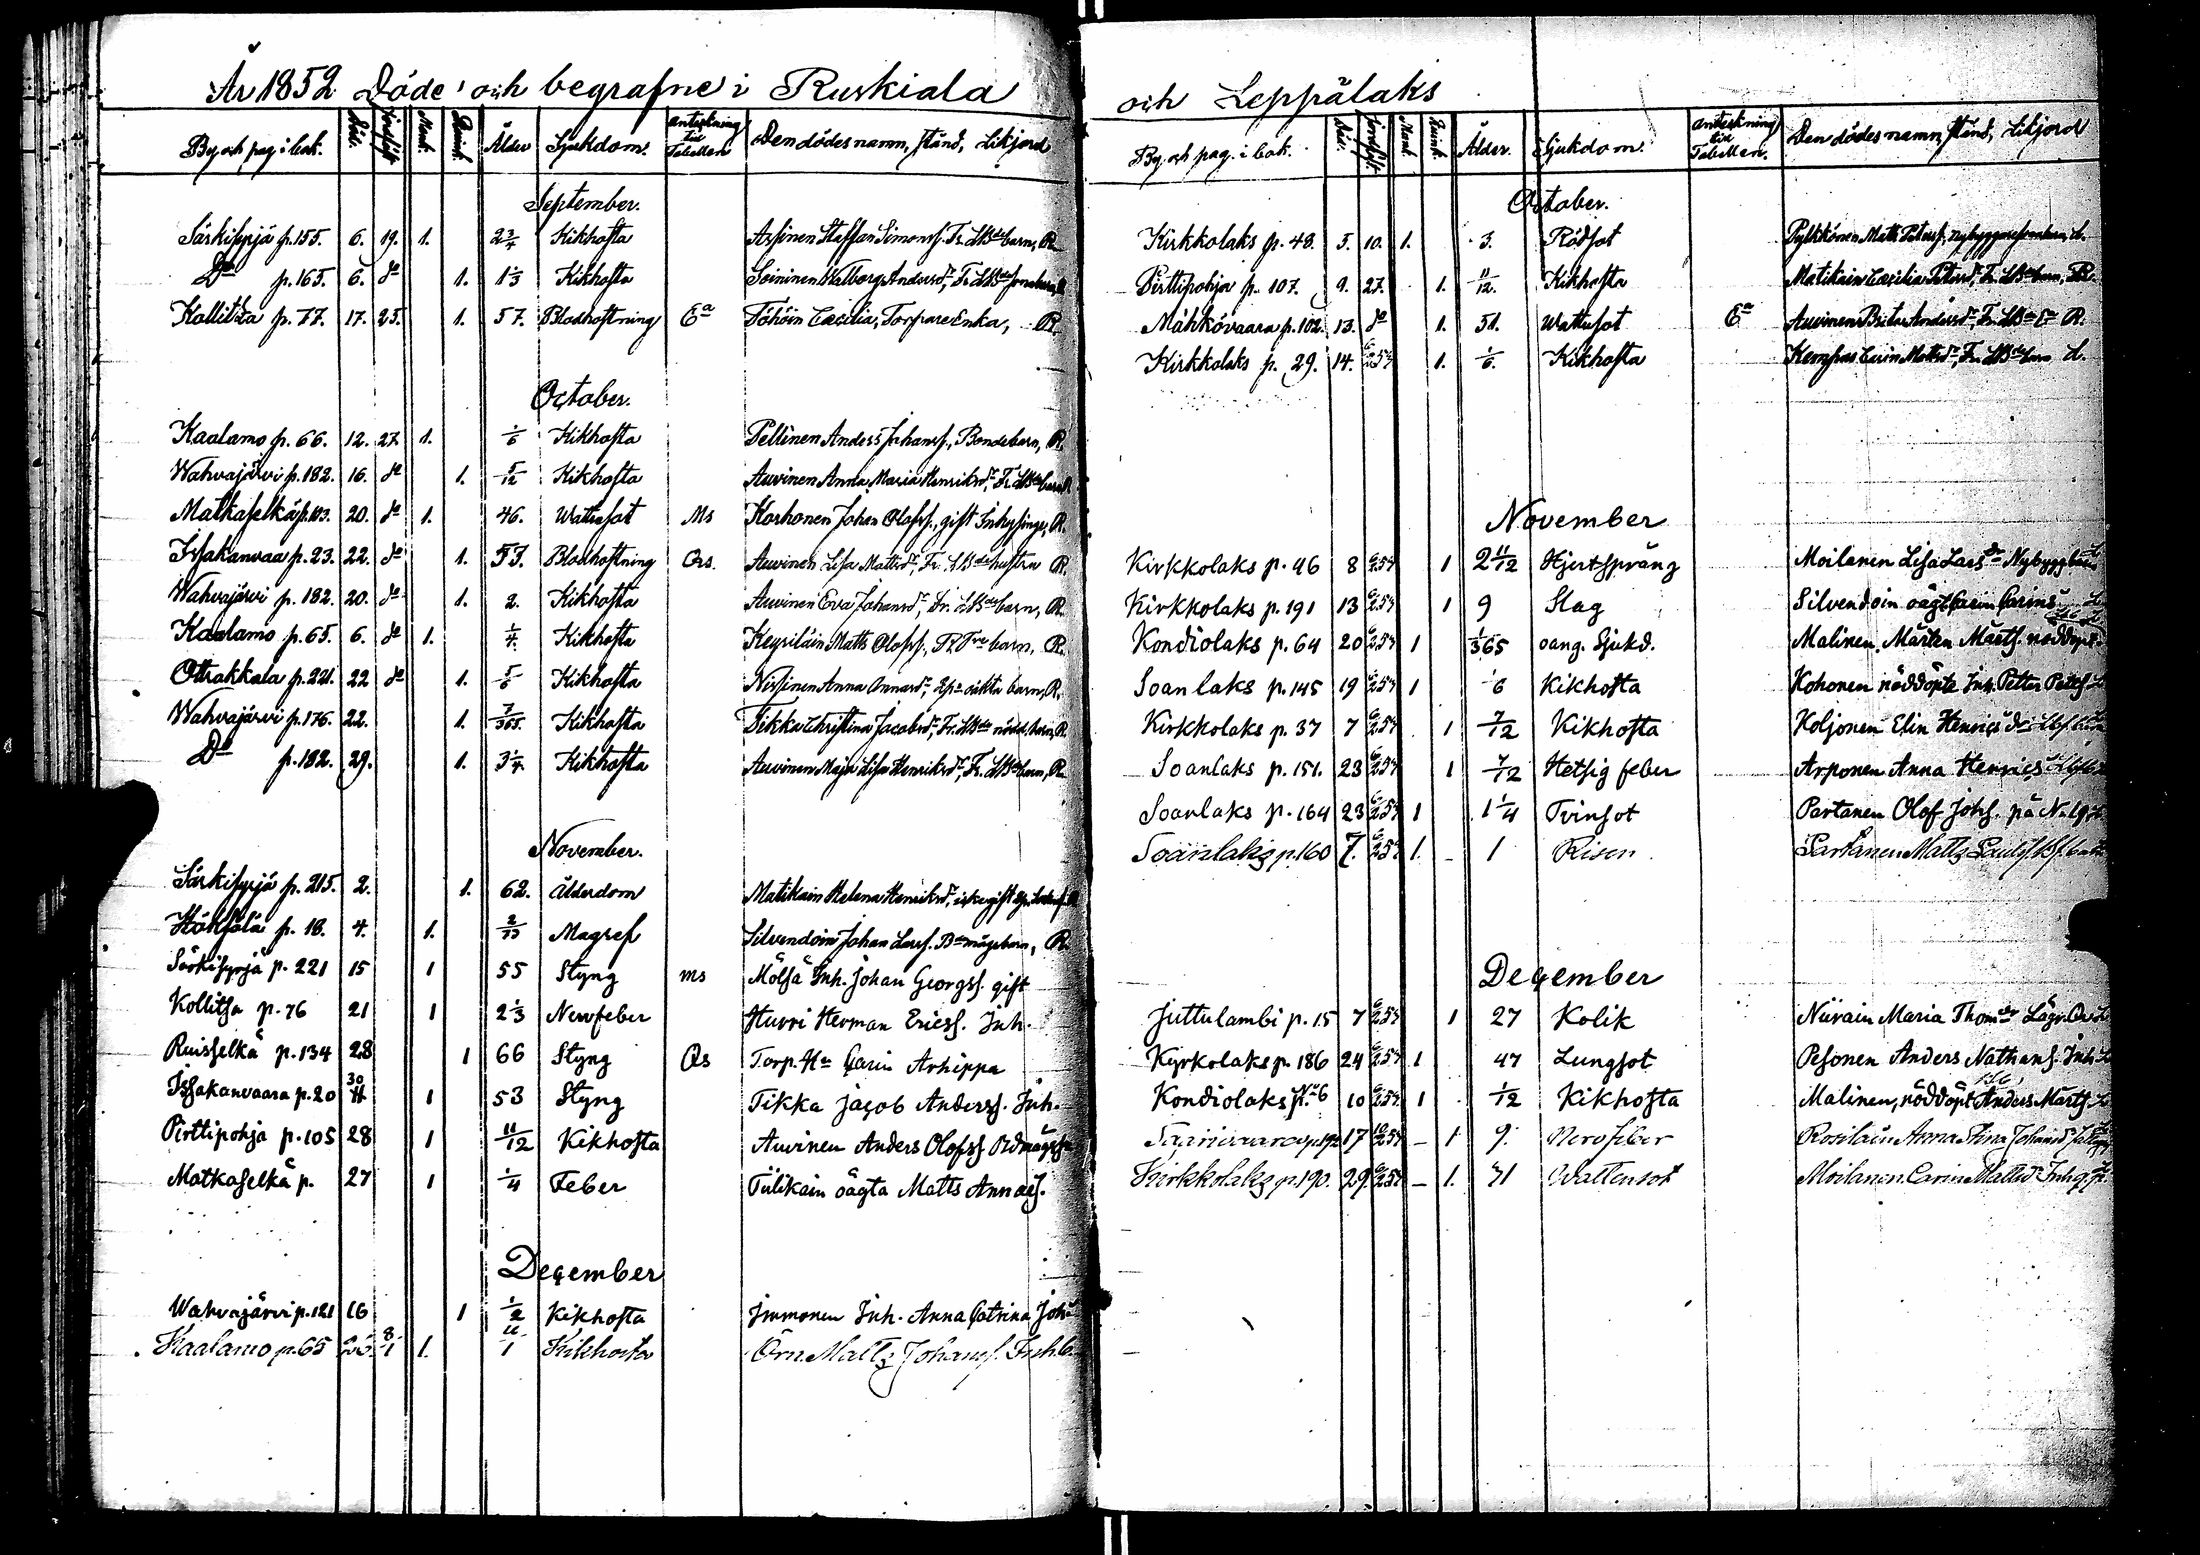 År 1852 Döde och begrafne i Ruskiala
By och pag i bok. Död. Jordfäst. Mank. Qvink. Ålder Sjukdom. Anteckning till Tabellen Den dödes namn, stånd, Likjord
September.
Särkisyrjä p. 155. 6. 19. 1. 2 3/4 Kikhosta Assinen Staffan Simonss. Fr. LBde barn, R.
Do p. 165. 6. do 1. 1 1/3 Kikhosta Soininen Walborg Andersdr, Fr. LBde
Kollitsa p. 77. 17. 25. 1. 57. Blodhostning Ea Töhöin Cæcilia, Torpare Enka, R.
October.
Kaalamo p. 66. 12. 27. 1. 1/6 Kikhosta Pellinen Anders Johanss., Bondebarn, R.
Wahvajärvi p. 182. 16. do 1. 5/12 Kikhosta Auvinen Anna Maria Henriksdr, Fr. LBde barn R.
Matkaselkä p. 113. 20. do 1. 46. Wattusot Ms Korhonen Johan Olofss., gift Inhysinge, R.
Issakanvaa p. 23. 22. do 1. 53. Blodhostning Qvs. Auvinen Lisa Mattsdr, Fr. LBde hustru R.
Wahvajärvi p. 182. 20. do 1. 2. Kikhosta Auvinen Eva Johansdr, Fr. LBde barn, R.
Kaalamo p. 65. 6. do 1. 1/4. Kikhosta Keyriläin Matts Olofss., Fr. Tre barn, R.
Ottrakkala p. 221. 22 do 1. 5/6 Kikhosta Nissinen Anna Annasdr, oäkta barn, R.
Wahvajärvi p. 176. 22. 1. 7/365. Kikhosta Tikka Christina Jacobsdr, Fr. LBde nödd. barn, R
Do p. 182. 29. 1. 3 1/4. Kikhosta Auvinen Maja Lisa Henriksdr, Fr. LBde barn, R.
November.
Särkisyrjä p. 215. 2. 1. 62. Ålderdom Matikain Helena Henriksdr, icke gift
p. 18. 4. 1. Magref Silvendoin Johan Larss. Bde mågsbarn, R.
Särkisyrjä p. 221 15 1 55 Styng ms Mölsä Inh. Johan Georgss. gift
Kollitsa p. 76 21 1 2 1/3 Nervfeber Hurri Herman Ericss. Inh.
Ruisselkä p. 134 28 1 66 Styng Qs Torp. Ha Carin Arhippa
Issakanvaara p. 20 30 1 53 Styng Tikka Jacob Anderss. Inh.
Pirttipohja p. 105 28 1 11/12 Kikhosta Auvinen Anders Olofss
Matkaselkä p. 27 1 1/4 Feber Tiilikain oägta Matts Annaes.
December
Wahvajärvi p. 121 16 1 1/2 Kikhosta Immonen Inh. Anna Catrina Joh.
Kaalamo p. 65 26. 8/1 1. Kikhosta Örn Matts Johanss. Inh. b.
och Leppälaks
By och pag. i bok. Död. Jordfäst. Mank. Qvink. Ålder. Sjukdom. Anteckning till Tabellen. Den dödes namn, stånd, Likjord
October.
Kirkkolaks p. 48. 5. 10. 1. 3. Rödsot Pylkkönen Matts Peterss, L.
Pirttipohja p. 107. 9. 27. 1. 11/12. Kikhosta Matikain Cæcilia Petersdr, Fr. LBde barn, R.
Mähkövaara p. 102. 13. do 1. 51. Wattusot Ea Auvinen Brita Andersdr, Fr. LBde Ea R.
Kirkkolaks p. 29. 14. 6/2 54 1. 1/6. Kikhosta Kemppas Carin Mattsdr, Fr. LBde barn L.
November
Kirkkolaks p. 46 8 6/2 54 1 2 11/12 Hjertspräng Moilanen Lisa Larsdr Nybygg barn
Kirkkolaks p. 191 13 6/2 54 1 9 Slag Silvendoin oägt Carin Carins
Kondiolaks p. 64 20 6/2 54 1 1/365 oang. Sjukd. Malinen Mårten Mårts. nöddöpt
Soanlaks p. 145 19 6/2 54 1 1/6 Kikhosta Kohonen nöddöpte Inh. Petter Petrs
Kirkkolaks p. 37 7 6/2 54 1 7/12 Kikhosta Koljonen Elin Henrics dr
Soanlaks p. 151. 23 6/2 54 1 7/12 Hetsig feber Arponen Anna Henrics
Soanlaks p. 164 23 6/2 54 1 1 1/4 Tvinsot Partanen Olof Johs. på No 19
Soanlaks p. 160 7. 6/2 54 1. - 1 Risen Partanen Matts Paulss.
December
Juttulambi p. 15 7 6/2 54 1 27 Kolik Niirain Maria Thomdr
Kyrkolaks p. 186 24 6/2 54 1 47 Lungsot Pesonen Anders Nathans. Inh.
Kondiolaks No 6 10 6/2 54 1 1/12 Kikhosta Malinen, nöddöpt Anders Mårts.
17 - 1 9. Nervfeber Rosilain Anna Stina Johansdr
Kirkkolaks p. 190. 29. 6/2 54 - 1. 71 Wattensot Moilanen Carin Mattsdr Inh.